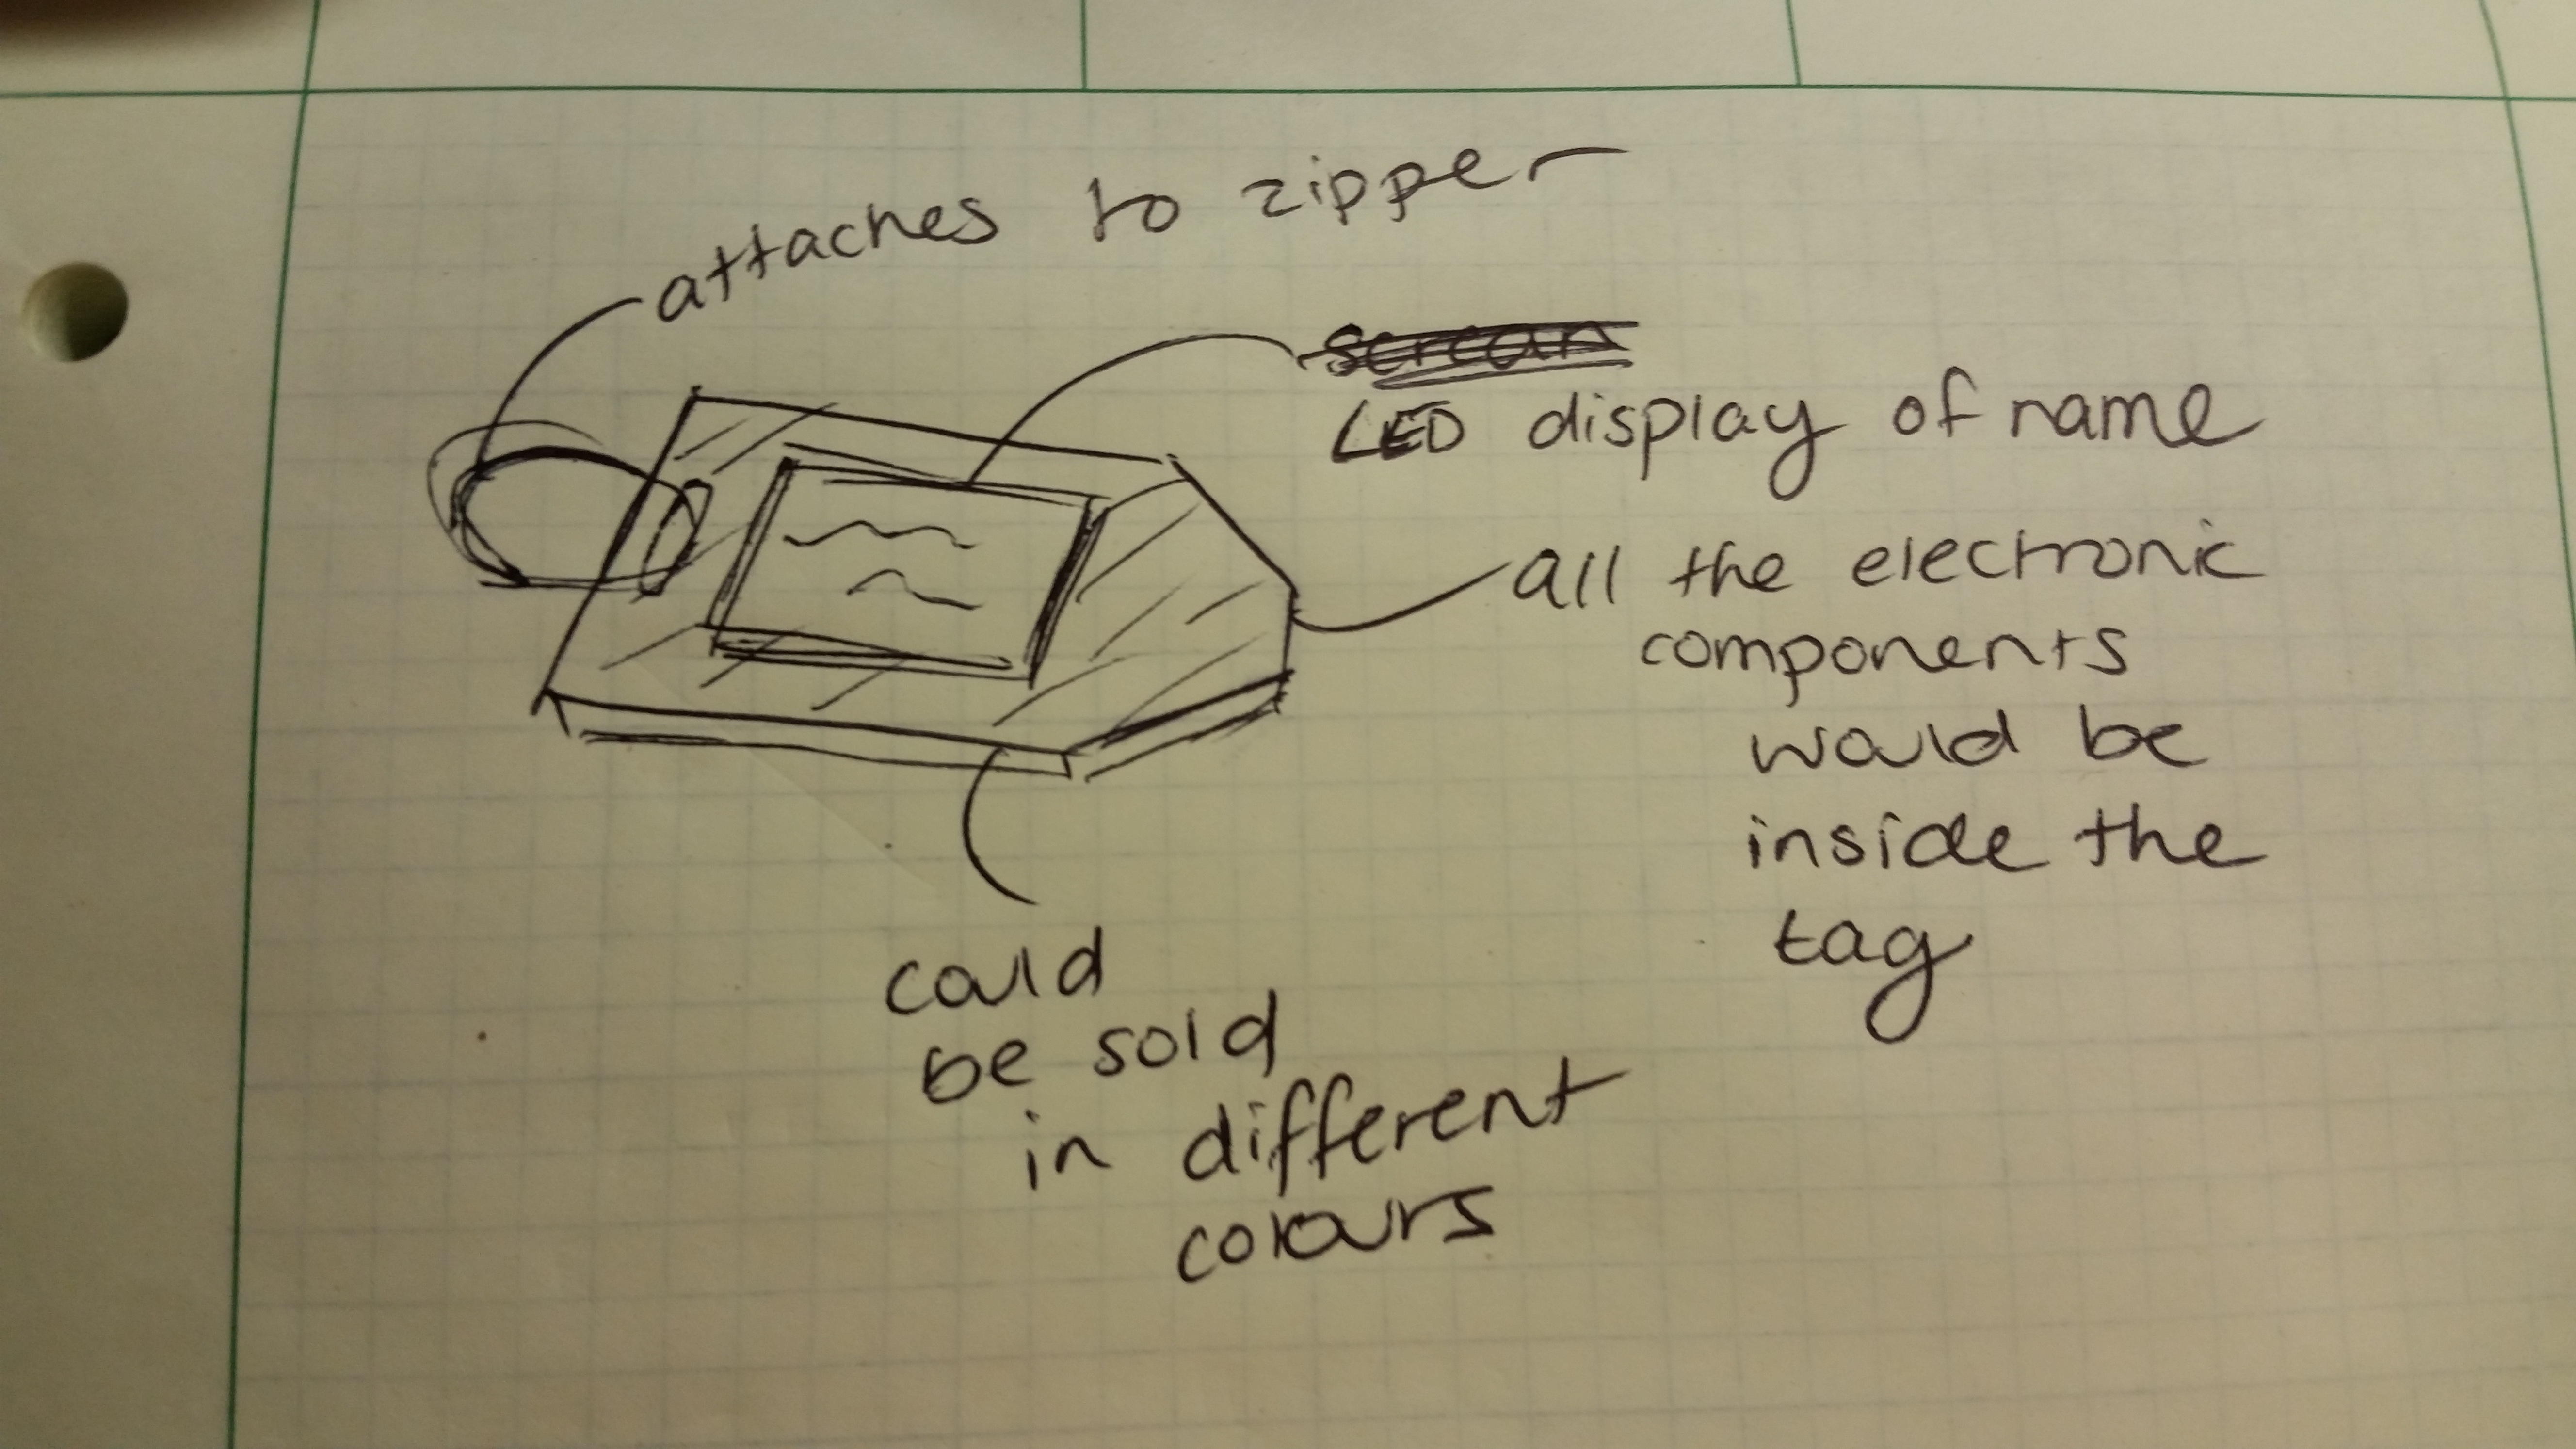 attaches to zipper
screan
LED display of name
all the electronic
components
would be
inside the
tag
could
be sold
in different
colours